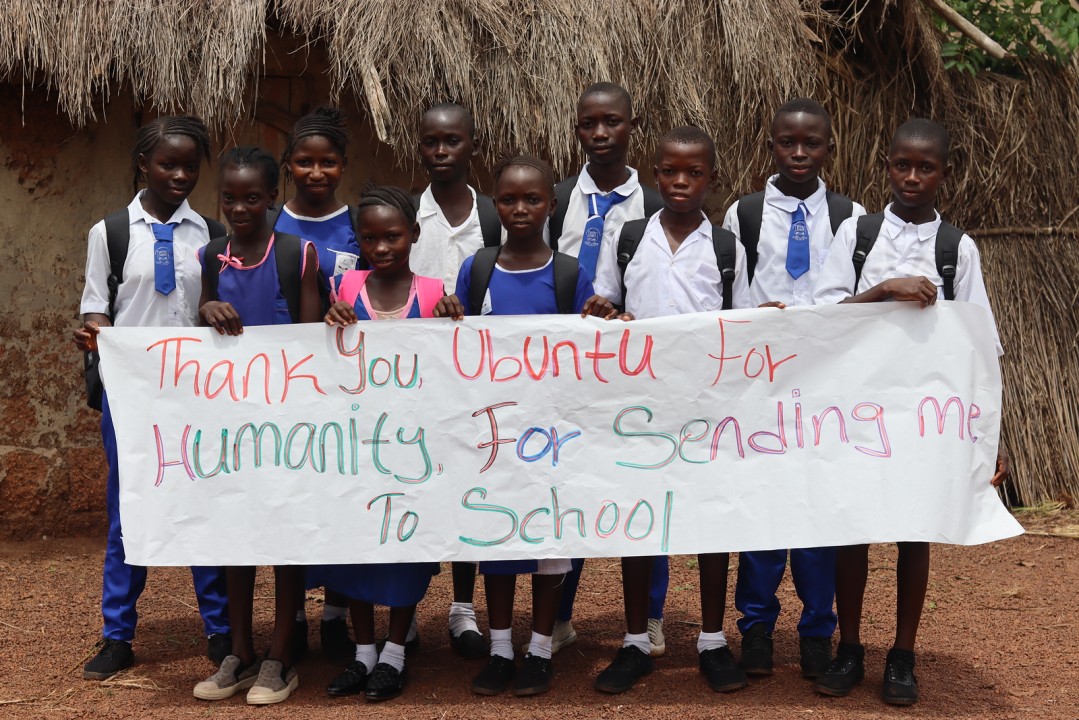 Thank You, Ubuntu For
Humanity, For Sending me
To School